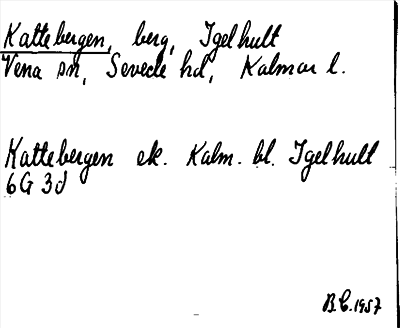 Kattebergen, berg, Igelhult
Vena sn, Sevede hd, Kalmar l.
Kattebergen ek. Kalm. bl. Igelhult
6G 3d
B.C. 1957